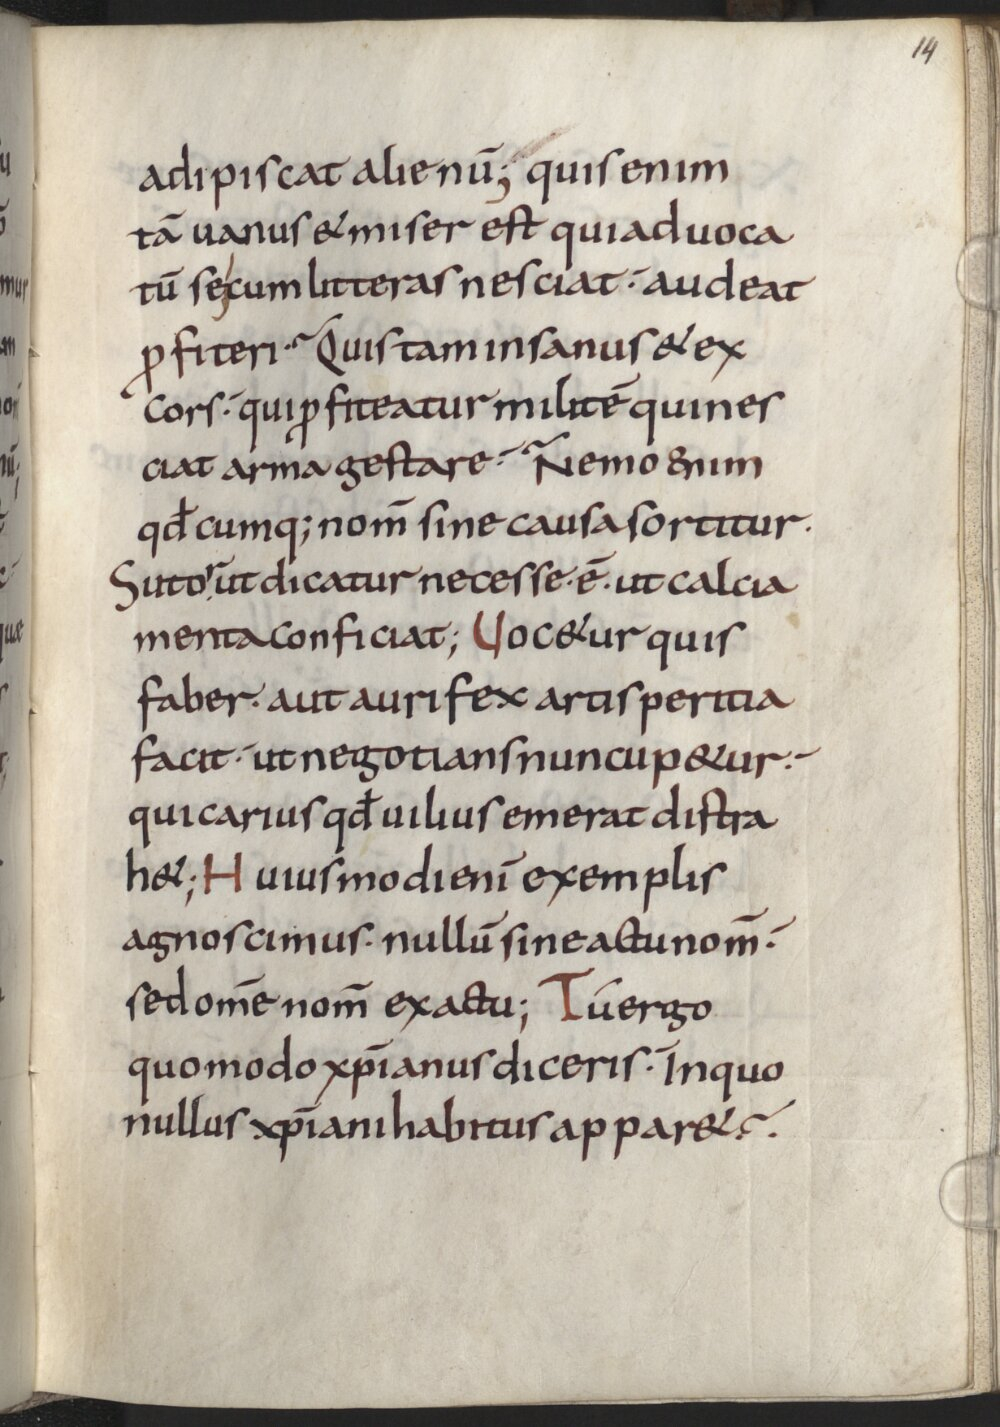 14
adipiscat alienū; quis enim
tā uanus & miser est qui aduoca
tū se cum litteras nesciat· audeat
ꝓfiteri·~ Quis tam insanus & ex
cors·- qui ꝓfiteatur militē qui nes
ciat arma gestare·~ Nemo enim
qđcumq; nom̄ sine causa sortitur·
Sutor ut dicatur necesse·ē· ut calcia
menta conficiat; Uoc&ur quis
faber· aut aurifex artis peritia
facit·- ut negotians nuncup&ur·-
qui carius qđ uilius emerat distra
h&; Huiusmodi enī exemplis
agnoscimus· nullū sine actu nom̄·-
sed om̄e nom̄ ex actu; Tū ergo
quomodo xp̄ianus diceris·- In quo
nullus xp̄iani habitus appar&·~·